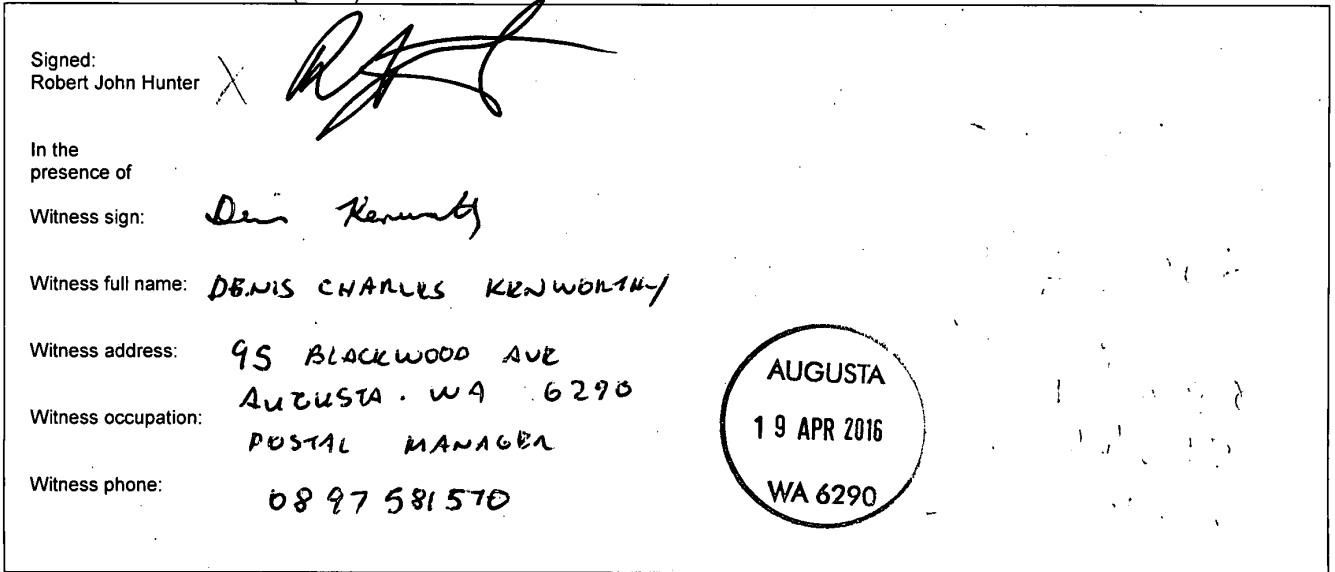 Signed:
Robert John Hunter X
In the
presence of
Witness sign: Denis Kenworthy
Witness full name: DENIS CHARLES KENWORTHY
Witness address: 95 BLACKWOOD AVE
AUGUSTA. WA 6290
Witness occupation:
POSTAL MANAGER
Witness phone: 08 97 581570
AUGUSTA
19 APR 2016
WA 6290